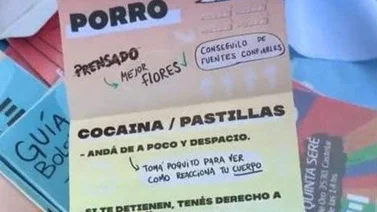 PORRO
PRENSADO
MEJOR FLORES
CONSEGUILO DE
FUENTES CONFIABLES
COCAINA / PASTILLAS
- ANDÁ DE A POCO Y DESPACIO.
TOMÁ POQUITO PARA VER
COMO REACCIONA TU CUERPO
SI TE DETIENEN, TENÉS DERECHO A
GUÍA
QUINTA SERÉ